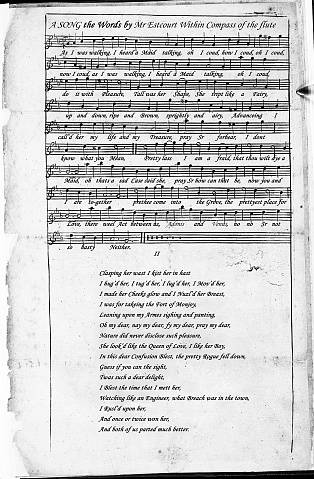 A SONG the Words by Mr Estcourt Within Compass of the flute
As I was walking, I heard a Maid talking, oh I coud, how I coud, oh I coud,
now I coud, as I was walking, I heard a Maid talking oh I coud,
do it with Pleasure, Tall was her Shape, She tript like a Fairy,
up and down, ripe and Brown, sprightly and airy, Advancing I
call'd her my life and my Treasure, pray Sr forbear, I dont
know what you Mean, Pretty lass I am a fraid, that thou wilt dye a
Maid, oh thats a sad Case said she, pray Sr how can that be, now you and
I are together prethee come into the Grove, the prettyest place for
Love, there weel Act between us, Adonis and Venus, no no Sr not
so hasty Neither.
II
Clasping her wast I kist her in hast
I hug'd her, I tug'd her, I lug'd her, I Mov'd her,
I made her Cheeks glow and I Nuzl'd her Breast,
I was for takeing the Fort of Monjoy,
Leaning upon my Armes sighing and panting,
Oh my dear, nay my dear, fy my dear, pray my dear,
Nature did never disclose such pleasure,
She look'd like the Queen of Love, I like her Boy,
In this dear Confusion Blest, the pretty Rogue fell down,
Guess if you can the sight,
Twas such a dear delight,
I Blest the time that I mett her,
Watching like an Engineer, what Breach was in the town,
I Rusl'd upon her,
And once or twice won her,
And both of us parted much better.